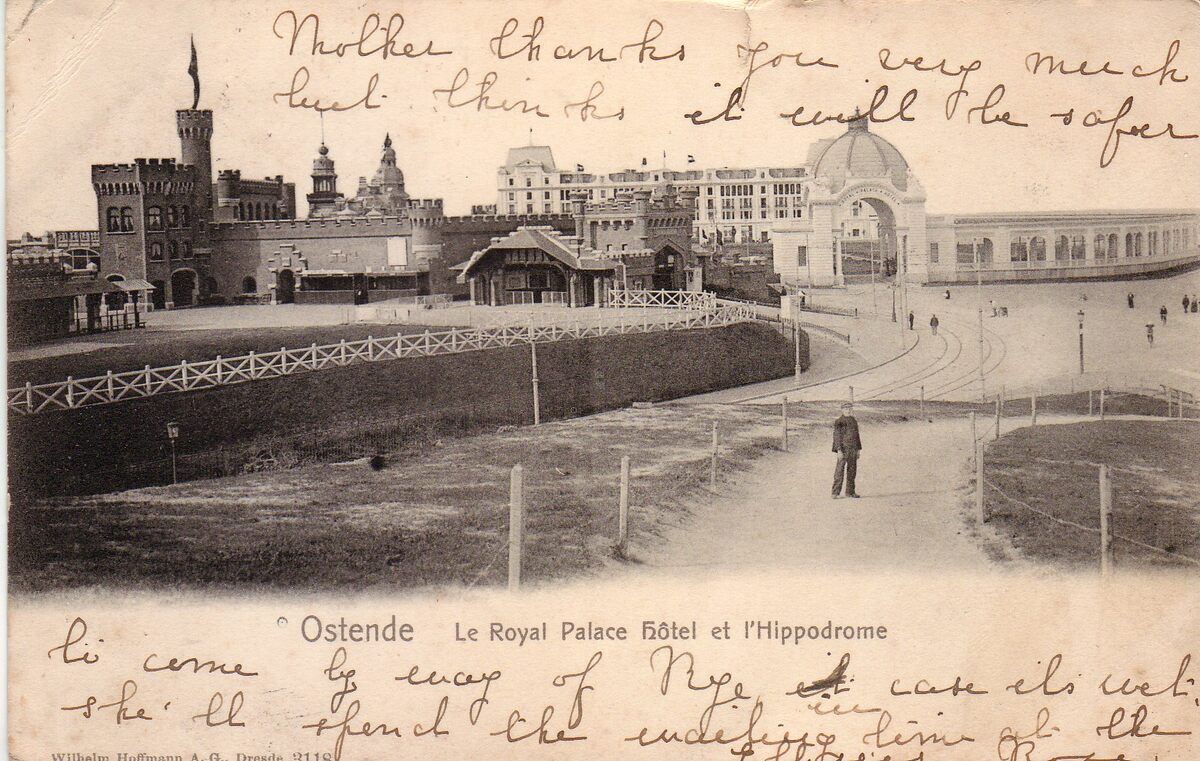 Mother thanks you very much
but thinks it will be safer
Ostende Le Royal Palace Hôtel et l'Hippodrome
to come by way of Rye in case its wet,
she'll spend the waiting time at the
Wilhelm Hoffmann A.G., Dresde 3118